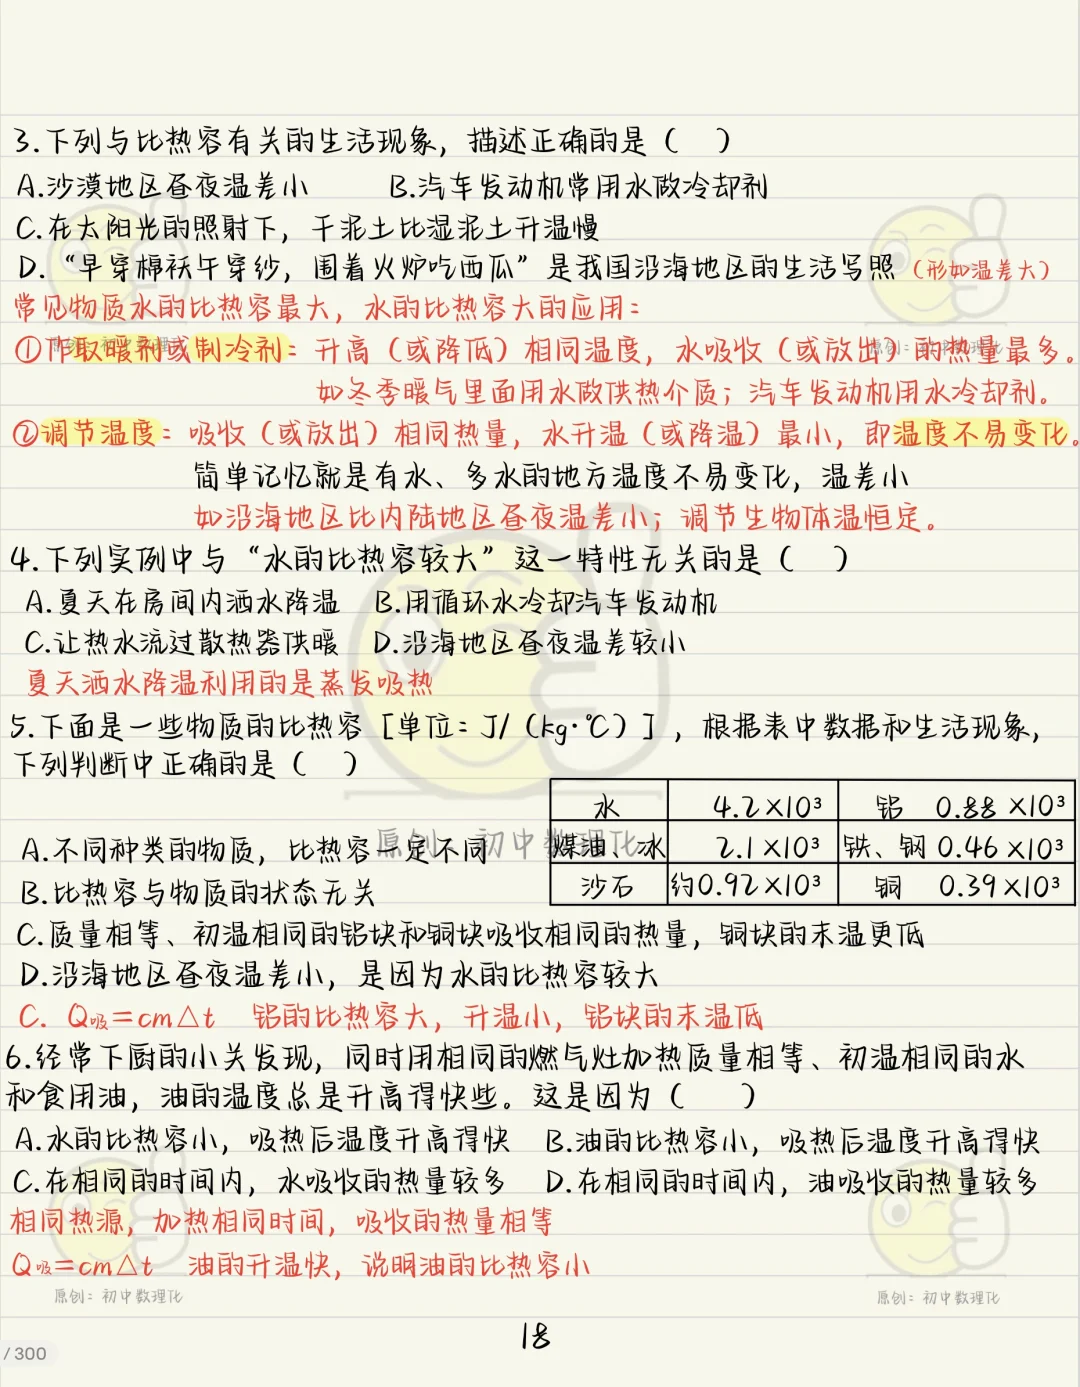 3.下列与比热容有关的生活现象，描述正确的是（  ）
A.沙漠地区昼夜温差小  B.汽车发动机常用水做冷却剂
C.在太阳光的照射下，干泥土比湿泥土升温慢
D.“早穿棉袄午穿纱，围着火炉吃西瓜”是我国沿海地区的生活写照（形如温差大）
常见物质水的比热容最大，水的比热容大的应用：
①作取暖剂或制冷剂：升高（或降低）相同温度，水吸收（或放出）的热量最多。
如冬季暖气里面用水做供热介质；汽车发动机用水冷却剂。
②调节温度：吸收（或放出）相同热量，水升温（或降温）最小，即温度不易变化。
简单记忆就是有水、多水的地方温度不易变化，温差小
如沿海地区比内陆地区昼夜温差小；调节生物体温恒定。
4.下列实例中与“水的比热容较大”这一特性无关的是（  ）
A.夏天在房间内洒水降温  B.用循环水冷却汽车发动机
C.让热水流过散热器供暖  D.沿海地区昼夜温差较小
夏天洒水降温利用的是蒸发吸热
5.下面是一些物质的比热容[单位：J/（kg·℃）]，根据表中数据和生活现象，
下列判断中正确的是（  ）
水  4.2×10³  铝  0.88×10³
煤油、冰  2.1×10³  铁、钢  0.46×10³
沙石  约0.92×10³  铜  0.39×10³
A.不同种类的物质，比热容一定不同
B.比热容与物质的状态无关
C.质量相等、初温相同的铝块和铜块吸收相同的热量，铜块的末温更低
D.沿海地区昼夜温差小，是因为水的比热容较大
C. Q吸=cm△t  铝的比热容大，升温小，铝块的末温低
6.经常下厨的小关发现，同时用相同的燃气灶加热质量相等、初温相同的水
和食用油，油的温度总是升高得快些。这是因为（  ）
A.水的比热容小，吸热后温度升高得快  B.油的比热容小，吸热后温度升高得快
C.在相同的时间内，水吸收的热量较多  D.在相同的时间内，油吸收的热量较多
相同热源，加热相同时间，吸收的热量相等
Q吸=cm△t  油的升温快，说明油的比热容小
原创：初中数理化  原创：初中数理化
18
/300
原创：初中数理化